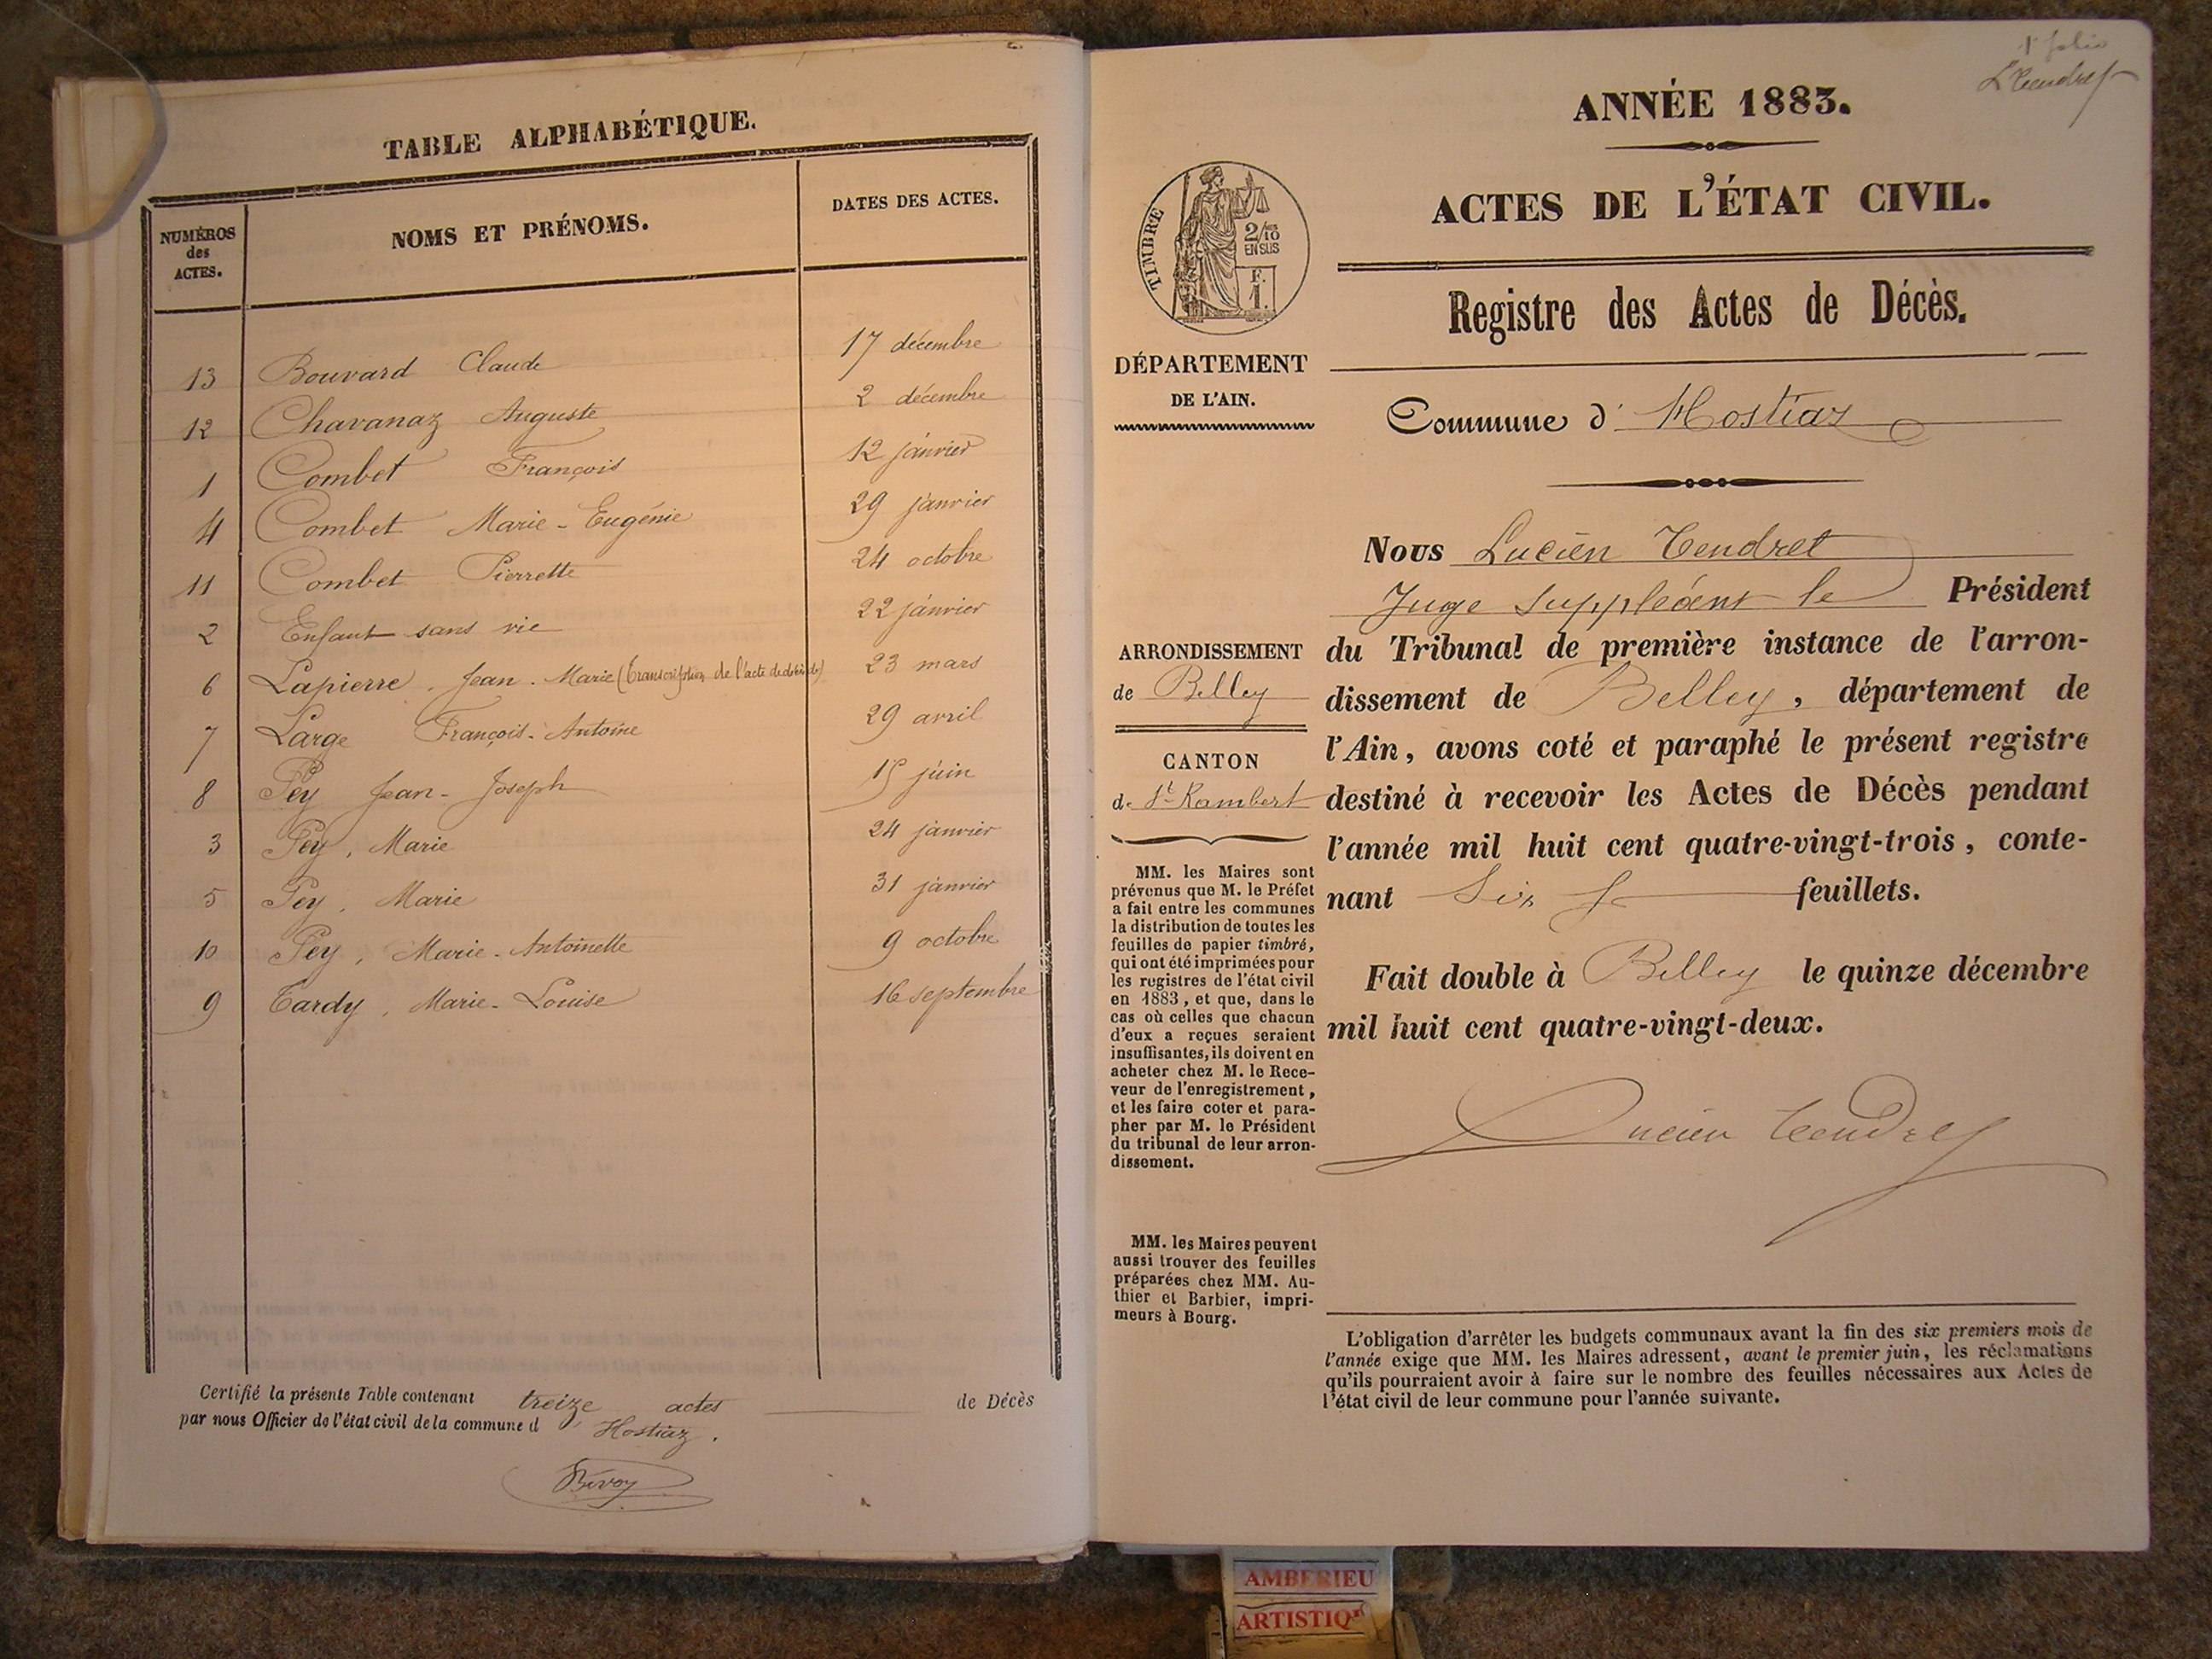 TABLE ALPHABÉTIQUE.
NUMÉROS des ACTES.
NOMS ET PRÉNOMS.
DATES DES ACTES.
13 Bouvard Claude 17 décembre
12 Chavanaz Auguste 2 décembre
1 Combet François 12 janvier
4 Combet Marie-Eugénie 29 janvier
11 Combet Pierrette 24 octobre
2 Enfant sans vie 22 janvier
6 Lapierre, Jean-Marie (transcription de l'acte de décès) 23 mars
7 Large François-Antoine 29 avril
8 Pey Jean-Joseph 15 juin
3 Pey, Marie 24 janvier
5 Pey, Marie 31 janvier
10 Pey, Marie-Antoinette 9 octobre
9 Tardy, Marie-Louise 16 septembre
Certifié la présente Table contenant treize actes de Décès
par nous Officier de l'état civil de la commune d' Hostiaz.
1er folio
LTendret
ANNÉE 1883.
ACTES DE L'ÉTAT CIVIL.
TIMBRE
2/10
EN SUS
F.
1.
Registre des Actes de Décès.
DÉPARTEMENT
DE L'AIN.
Commune d' Hostiaz
Nous Lucien Tendret
Juge suppléant le Président
du Tribunal de première instance de l'arron-
dissement de Belley, département de
l'Ain, avons coté et paraphé le présent registre
destiné à recevoir les Actes de Décès pendant
l'année mil huit cent quatre-vingt-trois, conte-
nant Six feuillets.
Fait double à Belley le quinze décembre
mil huit cent quatre-vingt-deux.
Lucien Tendret
ARRONDISSEMENT
de Belley
CANTON
de St Rambert
MM. les Maires sont
prévenus que M. le Préfet
a fait entre les communes
la distribution de toutes les
feuilles de papier timbré,
qui ont été imprimées pour
les registres de l'état civil
en 1883, et que, dans le
cas où celles que chacun
d'eux a reçues seraient
insuffisantes, ils doivent en
acheter chez M. le Rece-
veur de l'enregistrement,
et les faire coter et para-
pher par M. le Président
du tribunal de leur arron-
dissement.
MM. les Maires peuvent
aussi trouver des feuilles
préparées chez MM. Au-
thier et Barbier, impri-
meurs à Bourg.
L'obligation d'arrêter les budgets communaux avant la fin des six premiers mois de
l'année exige que MM. les Maires adressent, avant le premier juin, les réclamations
qu'ils pourraient avoir à faire sur le nombre des feuilles nécessaires aux Actes de
l'état civil de leur commune pour l'année suivante.
AMBERIEU
ARTISTIQ